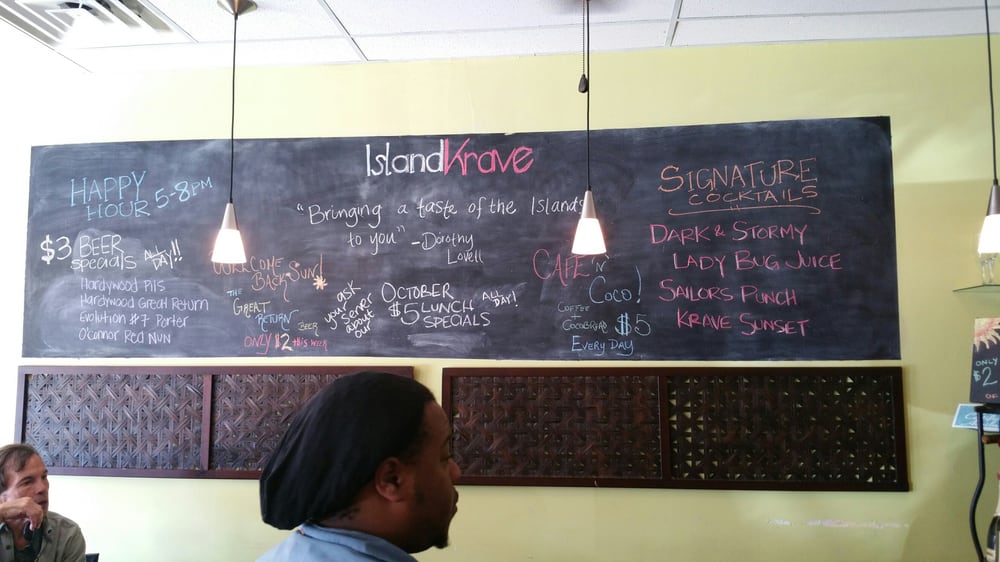 Island Krave
"Bringing a taste of the Islands
to you" - Dorothy
Lovell
HAPPY
HOUR 5-8PM
$3 BEER
specials ALL DAY!!
Hardywood Pils
Hardywood Great Return
Evolution #7 Porter
O'Connor Red Nun
WELCOME
BACK SUN!
THE
GREAT
RETURN
BEER
ONLY $2 this week
ask
your
server
about
our
OCTOBER
$5 LUNCH
SPECIALS
ALL DAY!
CAFE 'N'
COCO!
COFFEE
+
COCOBREAD $5
EVERY DAY
SIGNATURE
COCKTAILS
DARK & STORMY
LADY BUG JUICE
SAILORS PUNCH
KRAVE SUNSET
ONLY
$2
OF